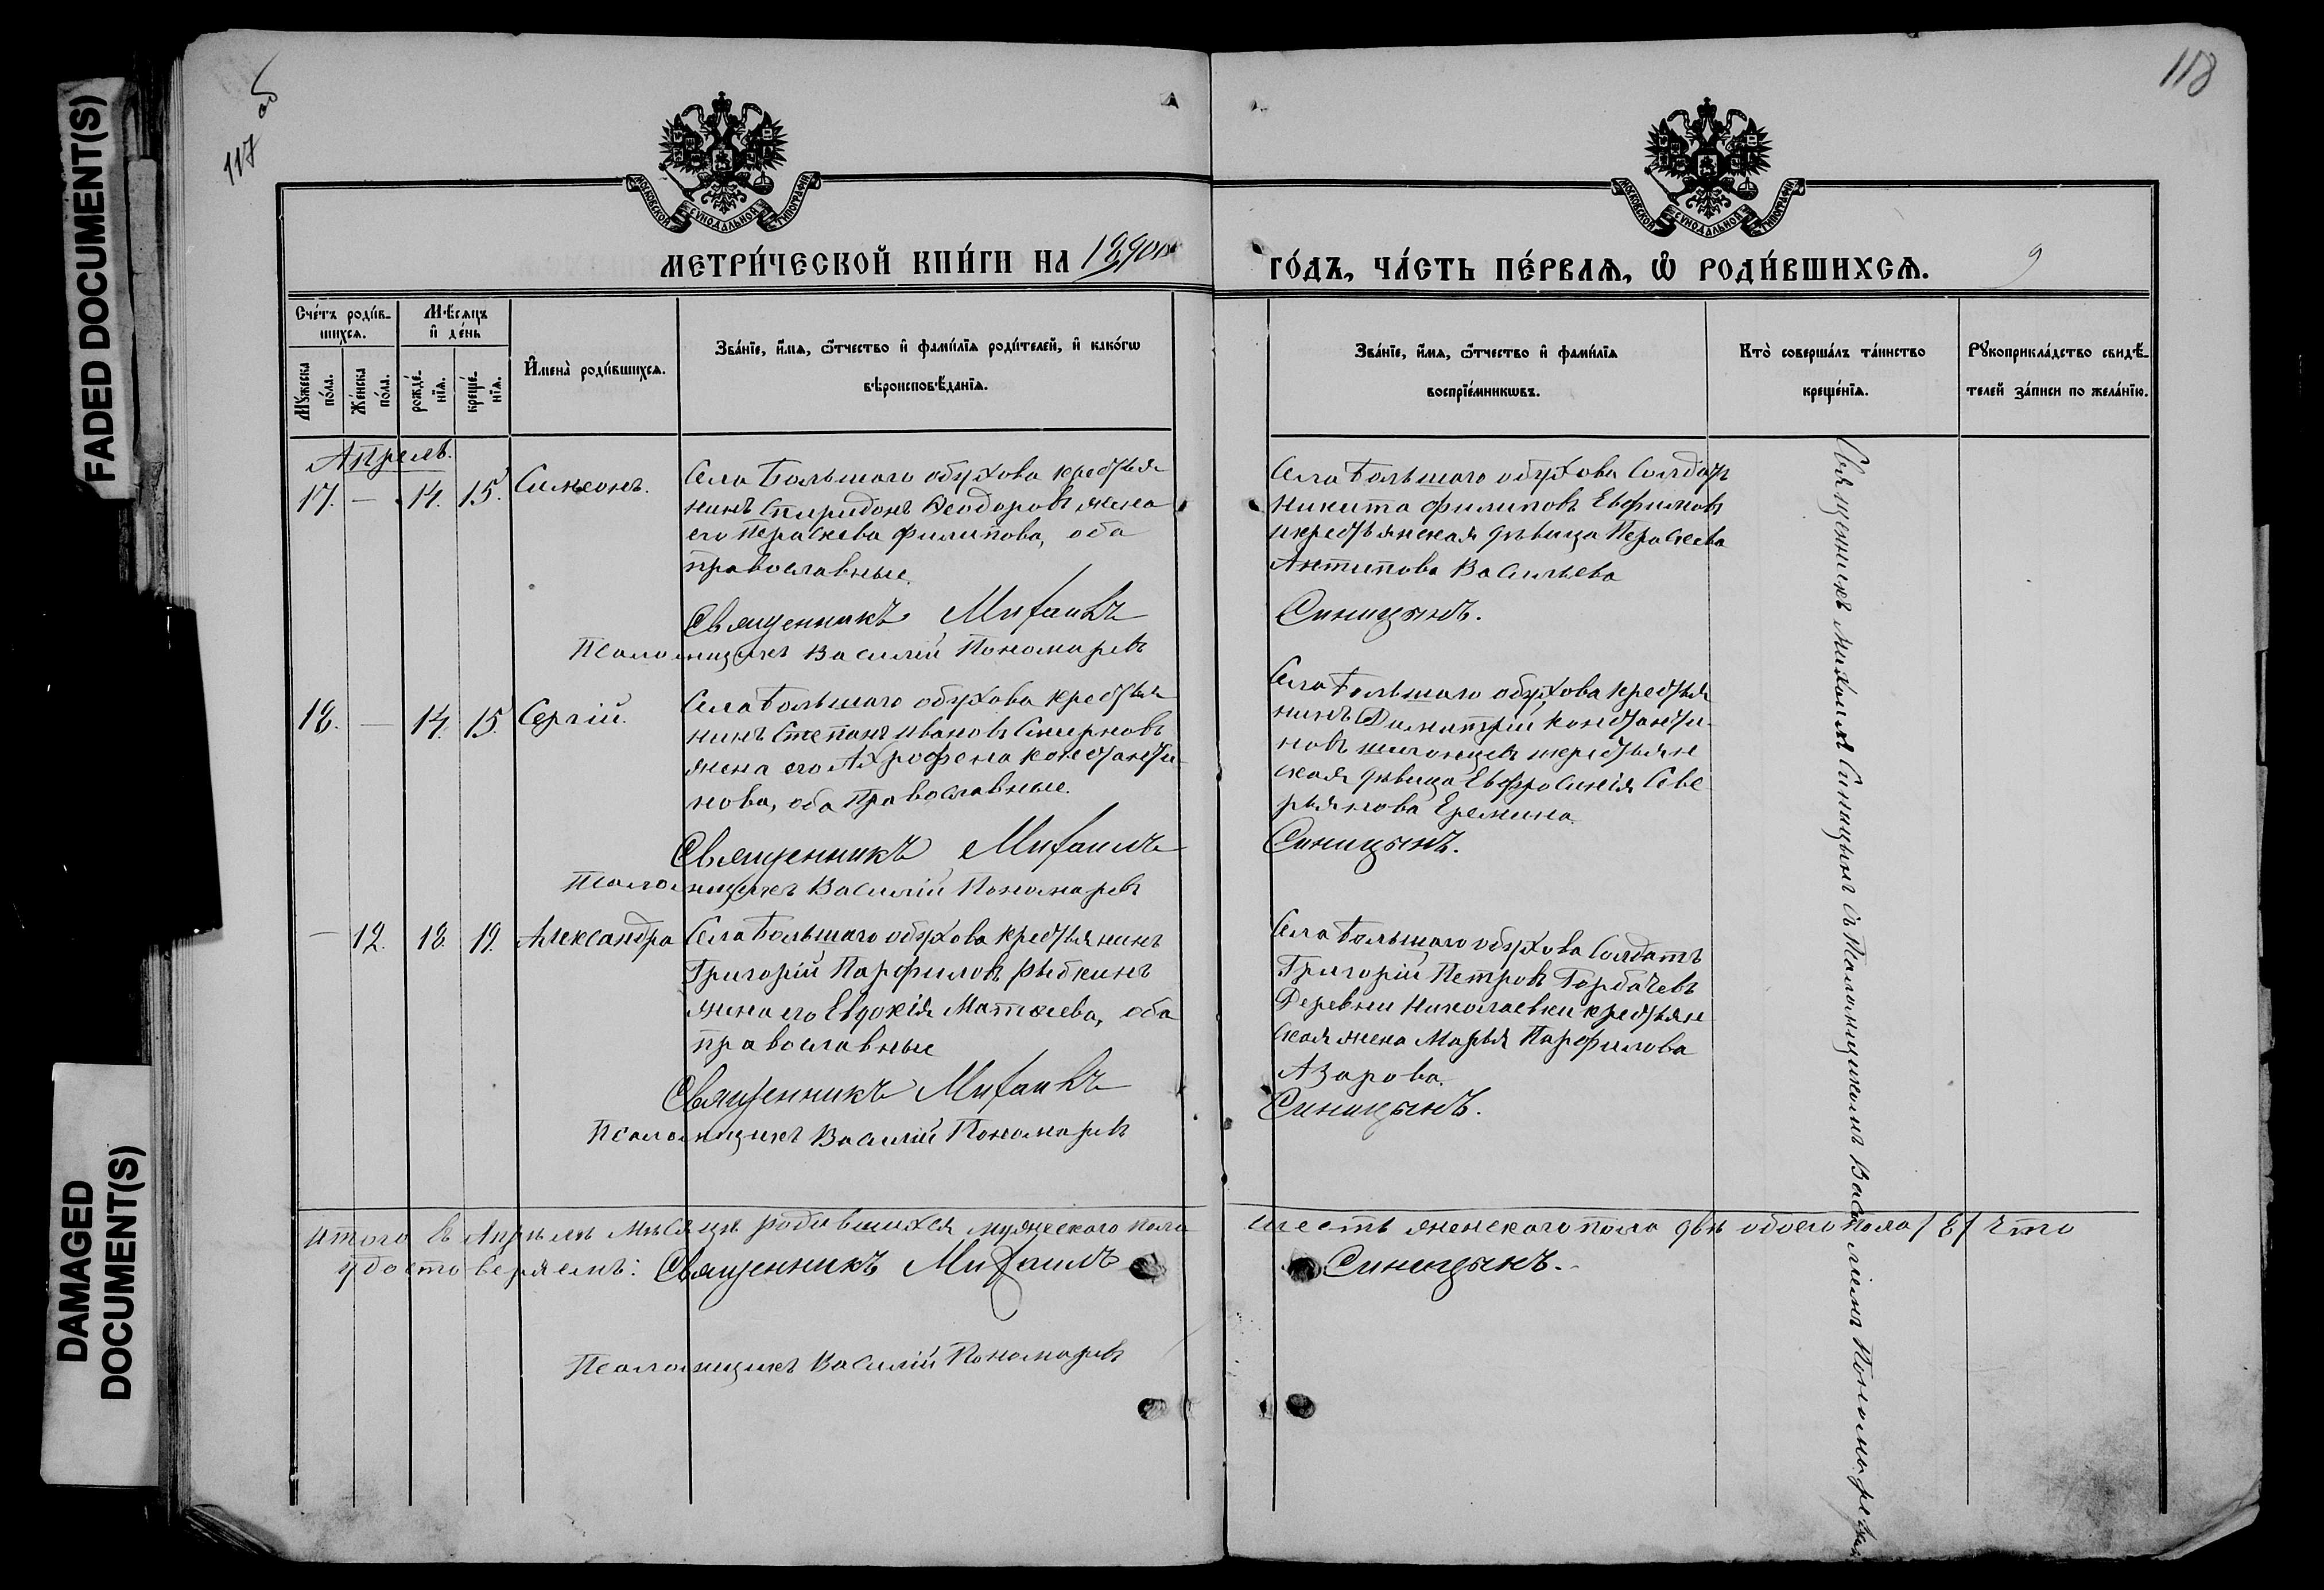 FADED DOCUMENT(S)
DAMAGED
DOCUMENT(S)
117 об
118
МОСКОВСКОЙ СѴНОДАЛЬНОЙ ТИПОГРАФІИ
МОСКОВСКОЙ СѴНОДАЛЬНОЙ ТИПОГРАФІИ
МЕТРИ́ЧЕСКОЙ КНИ́ГИ НА 1890й
ГО́ДЪ, ЧА́СТЬ ПЕ́РВАѦ, Ѡ҆ РОДИ́ВШИХСѦ. 9
Сче́тъ роди́в-
шихсѧ.
Мꙋ́жеска
по́ла.
Же́нска
по́ла.
Мѣ́сѧцъ
и҆ де́нь
рожде́-
нїѧ.
креще́-
нїѧ.
И҆мена̀ роди́вшихсѧ.
Зва́нїе, и҆́мѧ, ѻ҆́тчество и҆ фами́лїѧ роди́телей, и҆ како́гѡ
вѣроисповѣ́данїѧ.
Зва́нїе, и҆́мѧ, ѻ҆́тчество и҆ фами́лїѧ
воспрїе́мникѡвъ.
Кто̀ соверша́лъ та́инство
креще́нїѧ.
Рꙋкоприкла́дство свидѣ́-
телей за́писи по жела́нїю.
Апрель.
17. — 14. 15. Симеонъ.
Села Большаго обухова крестья
нинъ Спиридонъ Ѳеодоровъ жена
его Пераскева Филипова, оба
православные.
Священникъ Михаилъ
Псаломщикъ Василій Пономаревъ
Села Большаго обухова Солдатъ
Никита Филиповъ Евфимовъ
и крестьянская дѣвица Пераскева
Антипова Васильева
Синицынъ.
18. — 14. 15. Сергій.
Села Большаго обухова крестья
нинъ Степанъ Ивановъ Смирновъ
жена его Агрофена Константи-
нова, оба Православные.
Священникъ Михаилъ
Псаломщикъ Василій Пономаревъ
Села Большаго обухова крестья
нинъ Димитрій Константи-
новъ и крестьян
ская дѣвица Евфросинія Севе
рьянова Еремина
Синицынъ.
— 12. 18. 19. Александра
Села Большаго обухова крестьянинъ
Григорій Парфиловъ Рыбкинъ
жена его Евдокія Матѳеева, оба
православные
Священникъ Михаилъ
Псаломщикъ Василій Пономаревъ
Села Большаго обухова Солдатъ
Григорій Петровъ Горбачевъ
Деревни Николаевки крестьян
ская жена Марья Парфилова
Азарова.
Синицынъ.
Священникъ Михаилъ Синицынъ съ Псаломщикомъ Василіемъ Пономаревымъ
Итого въ Апрѣлѣ мѣсяцѣ родившихся мужескаго пола шесть женскаго пола двѣ обоего пола /8/ Что
удостовѣряемъ: Священникъ Михаилъ Синицынъ.
Псаломщикъ Василій Пономаревъ